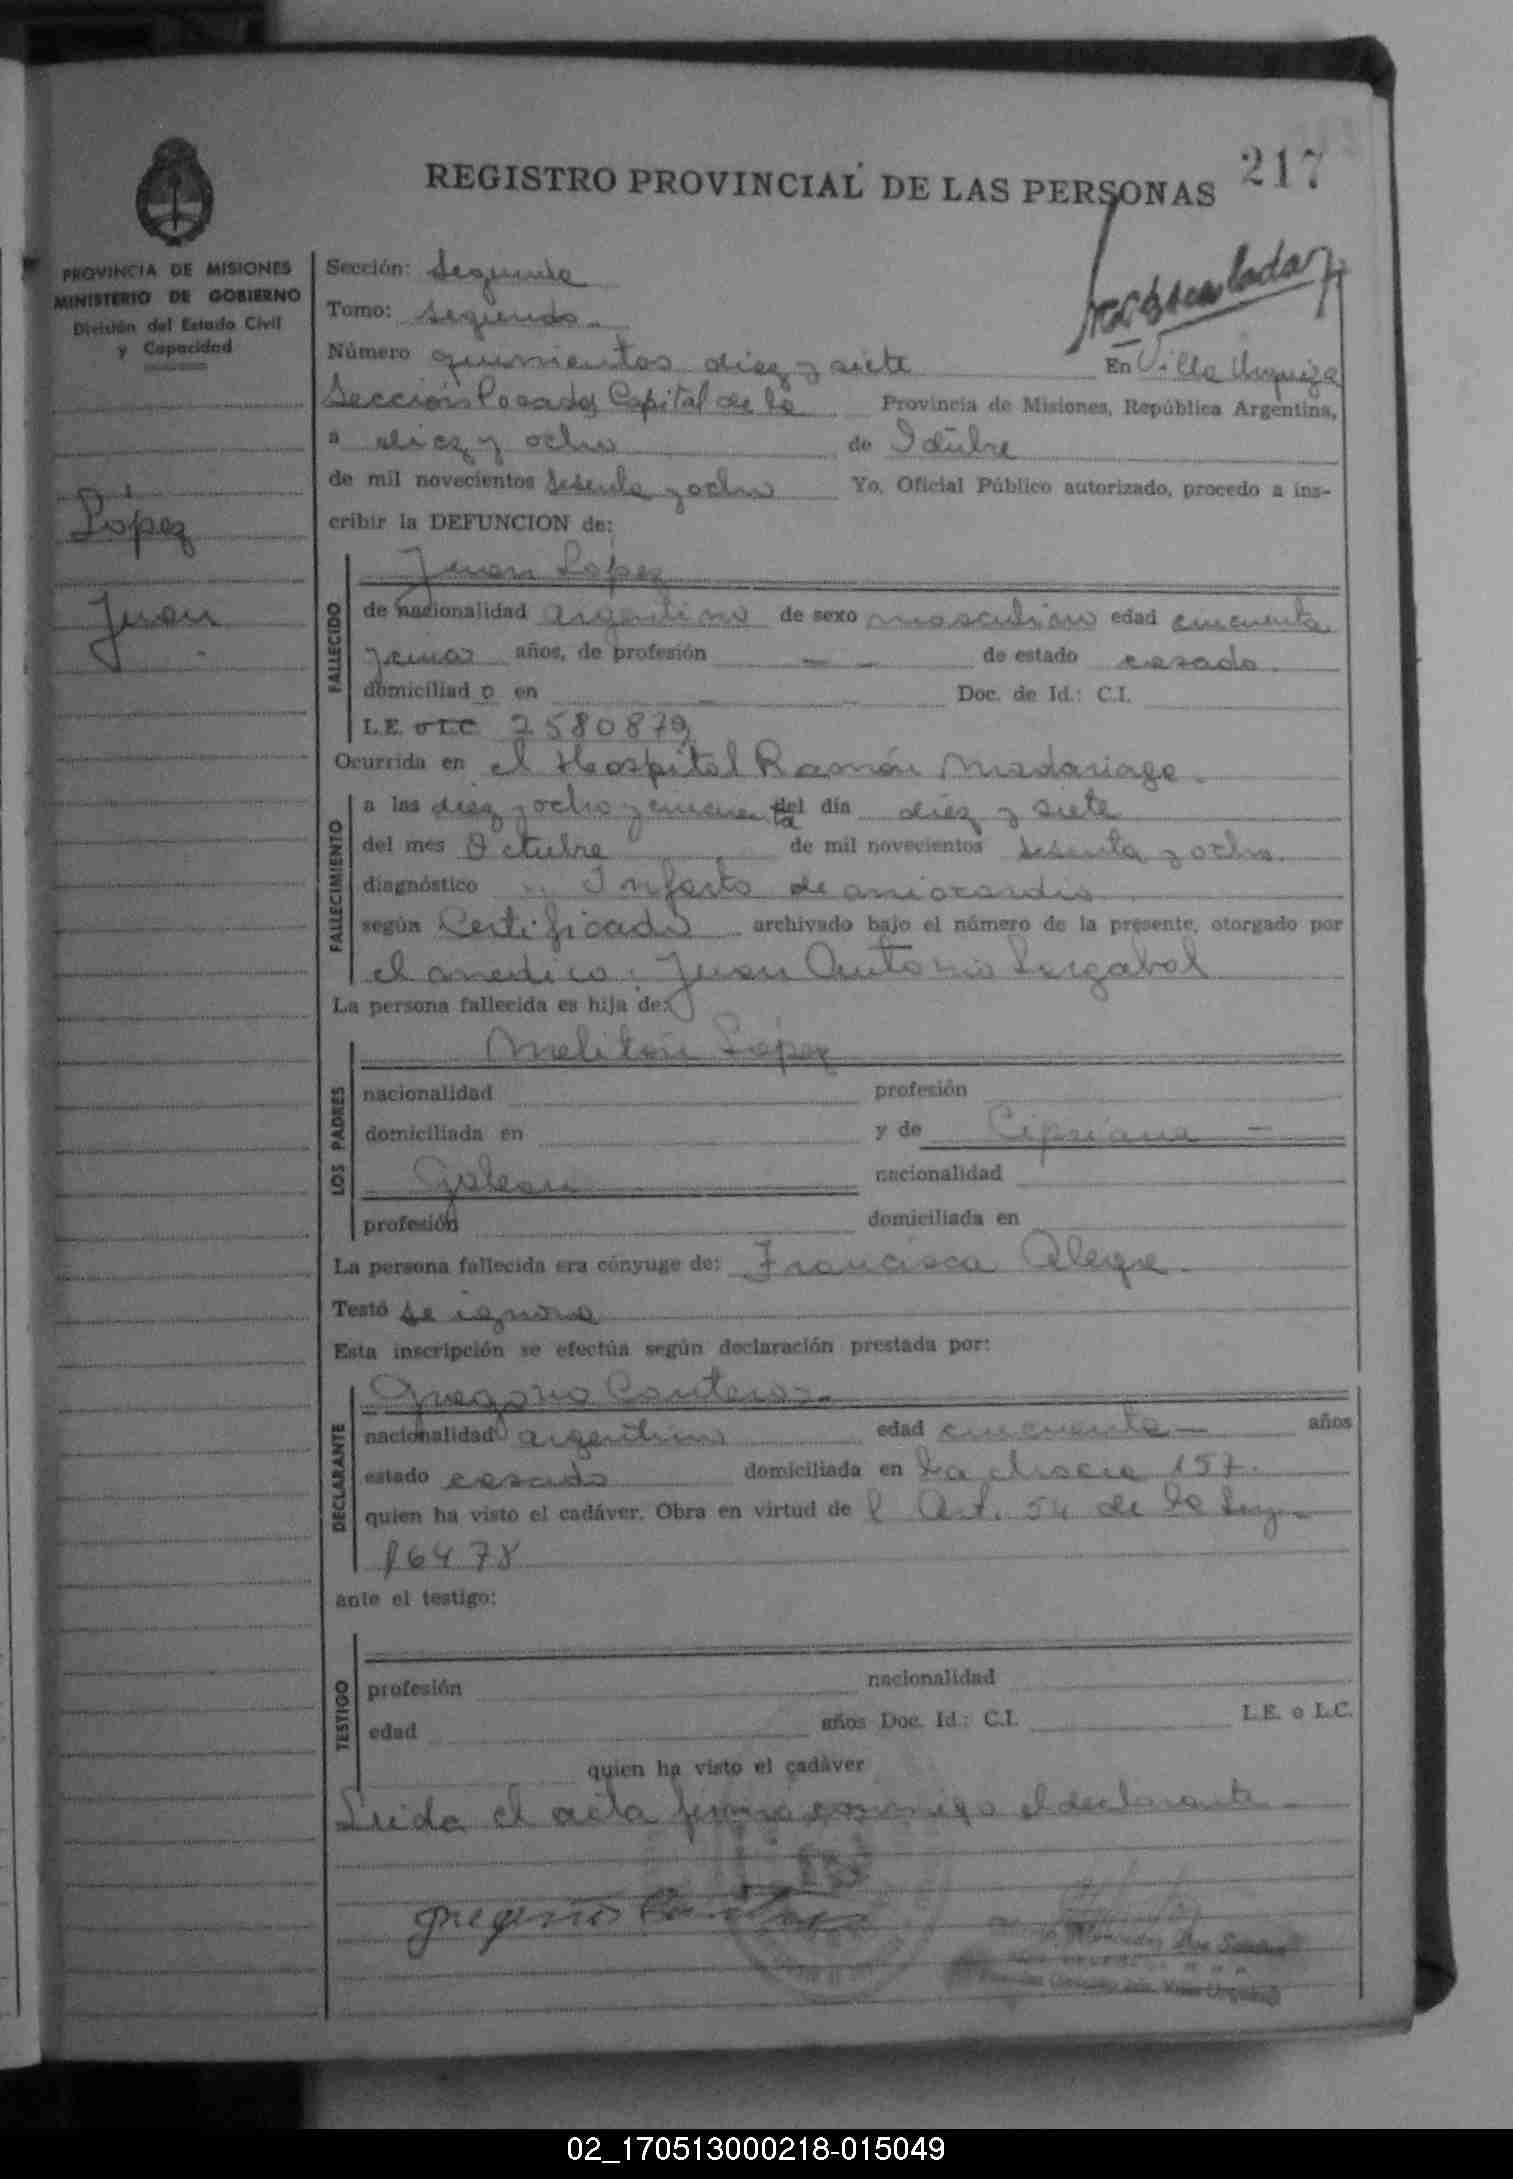 217
REGISTRO PROVINCIAL DE LAS PERSONAS
PROVINCIA DE MISIONES
MINISTERIO DE GOBIERNO
División del Estado Civil
y Capacidad
López
Juan
Sección: Segunda
Tomo: Segundo
Número quinientos diez y siete En Villa Urquiza
Sección Posadas Capital de la Provincia de Misiones, República Argentina,
a diez y ocho de Octubre
de mil novecientos sesenta y ocho Yo, Oficial Público autorizado, procedo a ins-
cribir la DEFUNCION de:
FALLECIDO
Juan López
de nacionalidad argentino de sexo masculino edad cincuenta
años, de profesión — — de estado casado
domiciliad o en — — Doc. de Id.: C.I.
L.E. o L.C. 2580879
Ocurrida en el Hospital Ramón Madariaga
FALLECIMIENTO
a las diez y ocho y cincuenta del día diez y siete
del mes Octubre de mil novecientos sesenta y ocho
diagnóstico Infarto de miocardio
según Certificado archivado bajo el número de la presente, otorgado por
el medico: Juan Antonio
La persona fallecida es hija de:
LOS PADRES
Melitón López
nacionalidad profesión
domiciliada en y de Cipriana —
Galeano nacionalidad
profesión domiciliada en
La persona fallecida era cónyuge de: Francisca Alegre
Testó se ignora
Esta inscripción se efectúa según declaración prestada por:
DECLARANTE
Gregorio Canteros
nacionalidad argentino edad cincuenta — años
estado casado domiciliada en La chacra 157
quien ha visto el cadáver. Obra en virtud de l Art. 54 de la Ley
16478
ante el testigo:
TESTIGO
profesión nacionalidad
edad años Doc. Id.: C.I. L.E. o L.C.
quien ha visto el cadáver
Leida el acta firma conmigo el declarante —
Gregorio Canteros
02_170513000218-015049